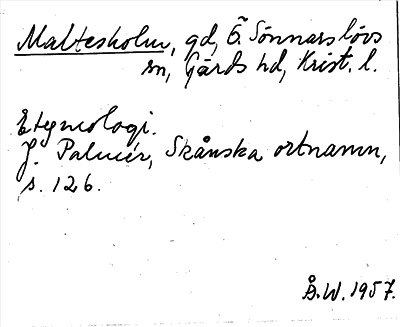 Maltesholm, gd, Ö. Sönnarslövs
sn, Gärds hd, Krist. l.
Etymologi.
J. Palmér, Skånska ortnamn,
s. 126.
Å.W. 1957.